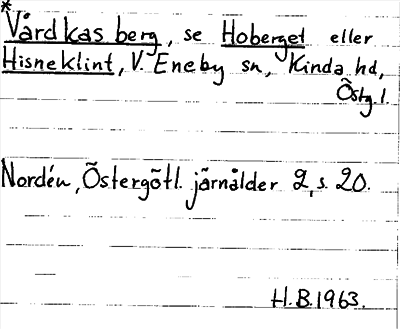 *
Vårdkasberg, se Hoberget eller
Hisneklint, V. Eneby sn, Kinda hd,
Östg.l.
Nordén, Östergötl. järnålder 2, s. 20.
H.B. 1963.